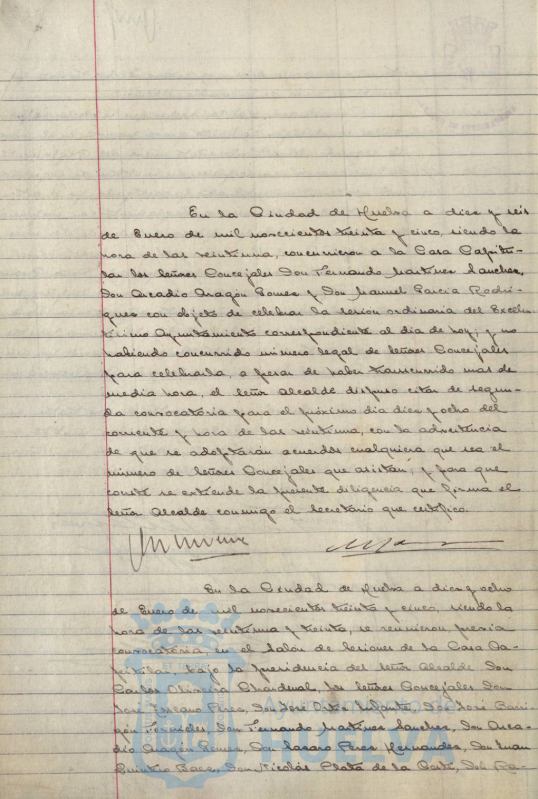 En la Ciudad de Huelva a diez y seis
de Enero de mil novecientos treinta y cinco, siendo la
hora de las veintiuna, concurrieron a la Casa Capitu-
lar los señores Concejales Don Fernando Martinez Sanchez,
Don Arcadio Aragón Gomez y Don Manuel Garcia Rodri-
guez con objeto de celebrar la sesion ordinaria del Excelen-
tisimo Ayuntamiento correspondiente al dia de hoy; y no
habiendo concurrido número legal de señores Concejales
para celebrarla, a pesar de haber transcurrido mas de
media hora, el señor Alcalde dispuso citar de segun-
da convocatoria para el próximo dia diez y ocho del
corriente y hora de las veintiuna, con la advertencia
de que se adoptarán acuerdos cualquiera que sea el
número de señores Concejales que asistan; y para que
conste se extiende la presente diligencia que firma el
señor Alcalde conmigo el Secretario que certifico.
En la Ciudad de Huelva a diez y ocho
de Enero de mil novecientos treinta y cinco, siendo la
hora de las veintiuna y treinta, se reunieron previa
convocatoria, en el Salón de Sesiones de la Casa Ca-
pitular, bajo la presidencia del señor Alcalde Don
Carlos Oliveira Chardenal, los señores Concejales Don
José Lozano Perez, Don José Ortiz Infante, Don José Barri-
gón Fornieles, Don Fernando Martinez Sanchez, Don Arca-
dio Aragón Gomez, Don Lazaro Perez Hernandez, Don Juan
Quintero Baez, Don Nicolás Plata de la Corte, Don Ra-
HUELVA